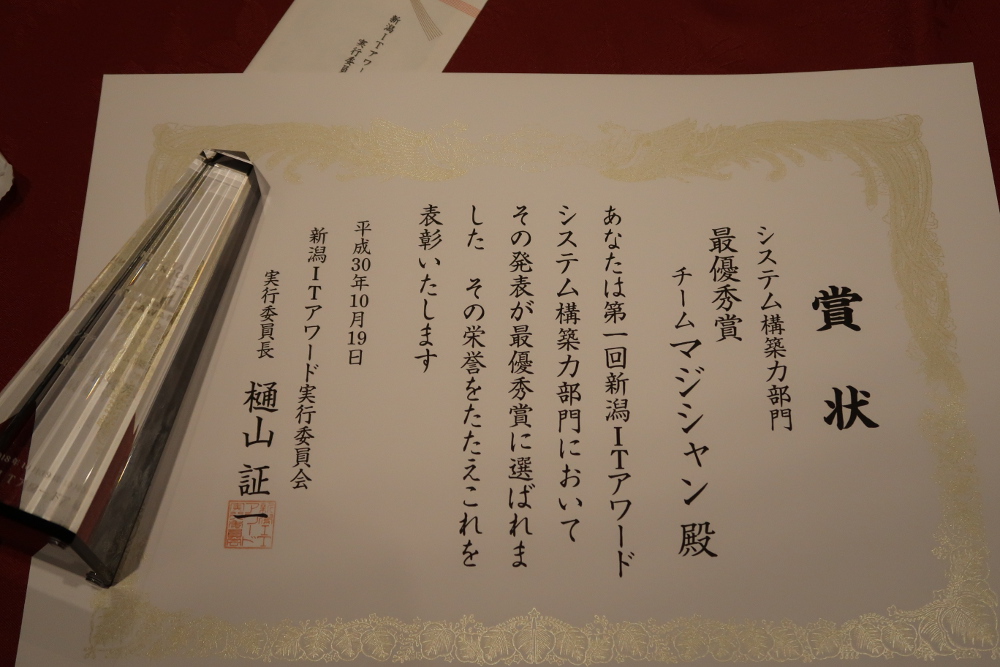 賞状
システム構築力部門
最優秀賞
チームマジシャン 殿
あなたは第一回新潟ITアワード
システム構築力部門において
その発表が最優秀賞に選ばれま
した その栄誉をたたえこれを
表彰いたします
平成30年10月19日
新潟ITアワード実行委員会
実行委員長 樋山 証一
新潟ITアワー
実行委員